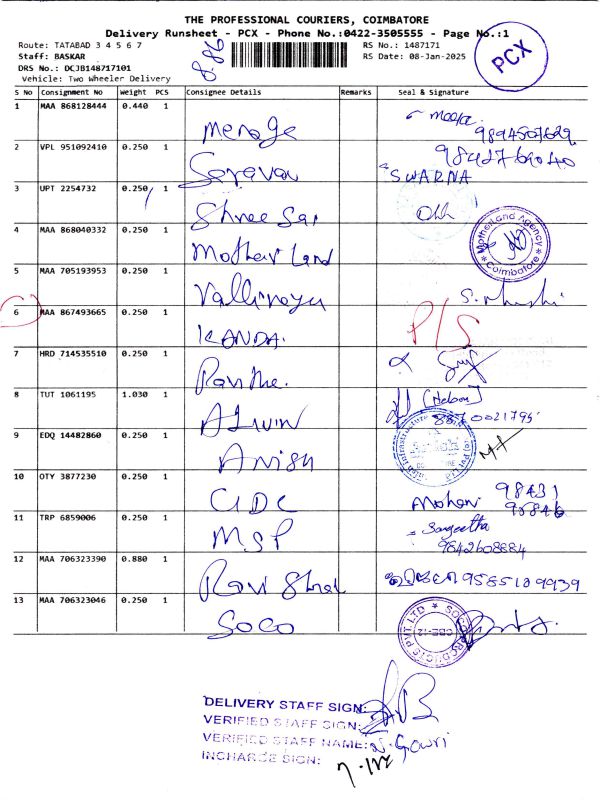 THE PROFESSIONAL COURIERS, COIMBATORE
Delivery Runsheet - PCX - Phone No.:0422-3505555 - Page No.:1
Route: TATABAD 3 4 5 6 7
RS No.: 1487171
Staff: BASKAR
RS Date: 08-Jan-2025
DRS No.: DCJB148717101
Vehicle: Two Wheeler Delivery
8.86
PCX
S No Consignment No Weight PCS Consignee Details Remarks Seal & Signature
1 MAA 868128444 0.440 1
2 VPL 951092410 0.250 1 Saravan
SWARNA
3 UPT 2254732 0.250 1 Shree Sai
4 MAA 868040332 0.250 1 Mother Land
MotherLand Agency * Coimbatore *
5 MAA 705193953 0.250 1
6 MAA 867493665 0.250 1 KANDA. P/S
7 HRD 714535510 0.250 1
8 TUT 1061195 1.030 1 Alwin
(Nelson)
8870021795
9 EDQ 14482860 0.250 1 Anish
10 OTY 3877230 0.250 1 CIDC Mohan 98431
11 TRP 6859006 0.250 1 MSP Sangeetha
9842608884
12 MAA 706323390 0.880 1 9585109939
13 MAA 706323046 0.250 1 SOCO
DELIVERY STAFF SIGN:
VERIFIED STAFF SIGN:
VERIFIED STAFF NAME: N. Gowri
INCHARGE SIGN: